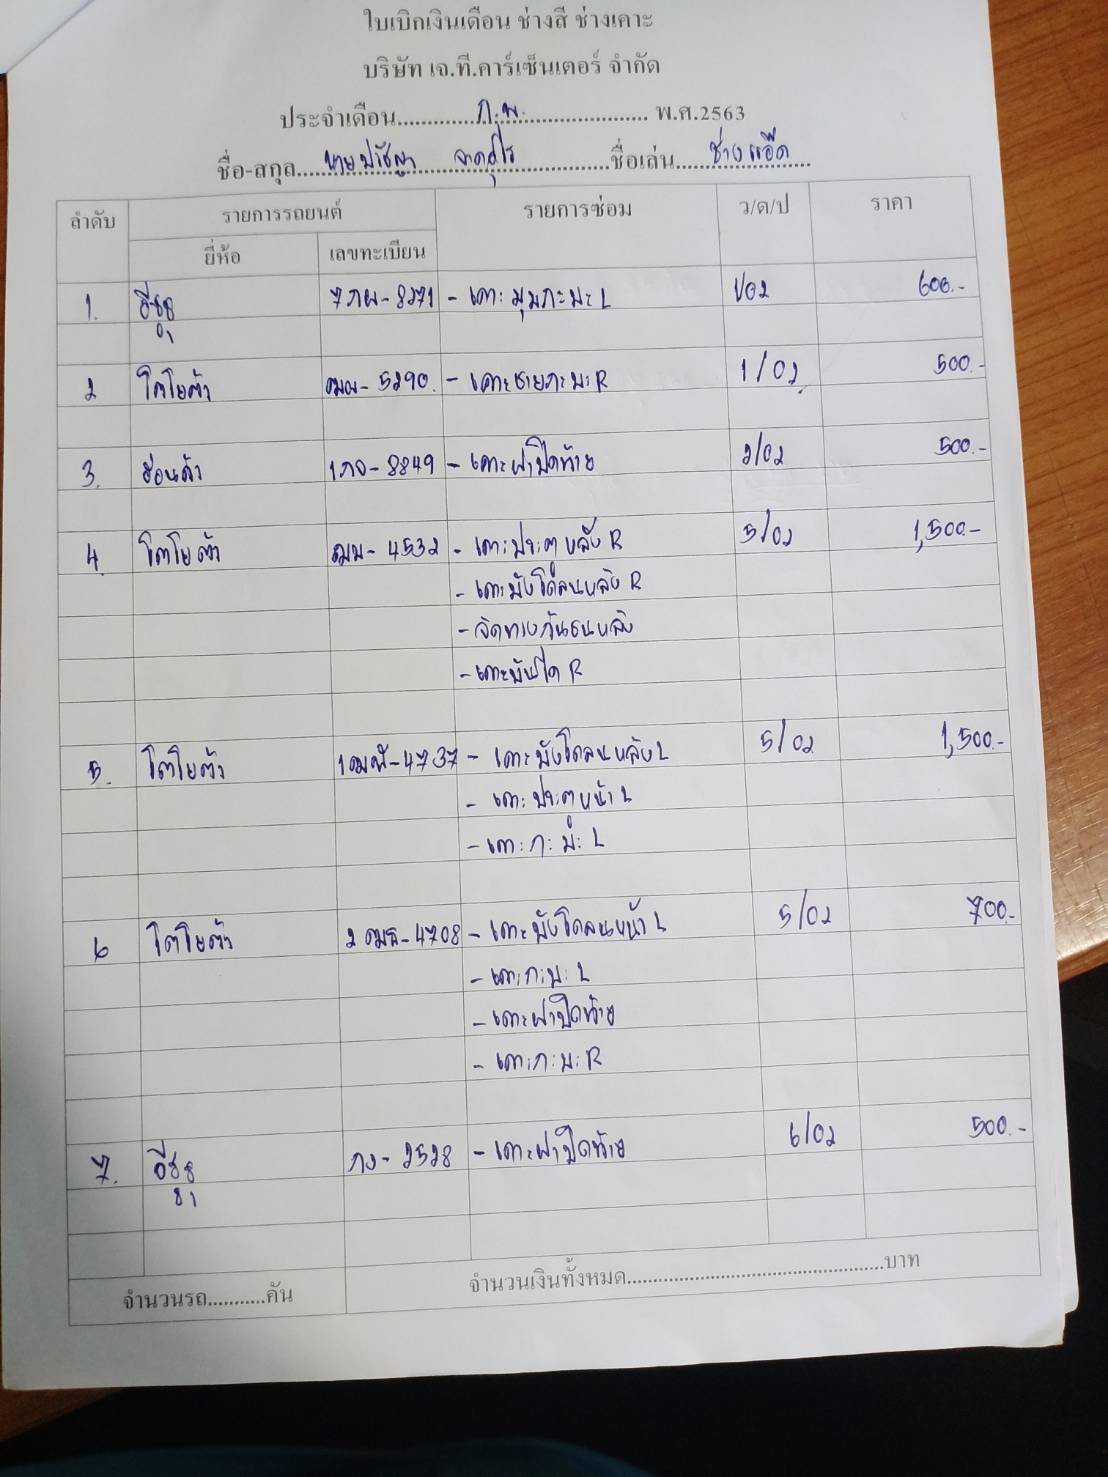 ใบเบิกเงินเดือน ช่างสี ช่างเคาะ
บริษัท เจ.ที.คาร์เซ็นเตอร์ จำกัด
ประจำเดือน............ก.พ...................... พ.ศ.2563
ชื่อ-สกุล....นายปรัชญา..........ชื่อเล่น....ช่างแอ๊ด....
ลำดับ รายการรถยนต์ รายการซ่อม ว/ด/ป ราคา
ยี่ห้อ เลขทะเบียน
1. อีซูซุ 7กผ-8271 - เคาะมุมกะบะ L 1/02 600.-
2 โตโยต้า ฒผ-5290. - เคาะชายกะบะ R 1/02 500.-
3. ฮอนด้า 1กจ-8849 - เคาะฝาปิดท้าย 2/02 500.-
4. โตโยต้า ฒน-4532 - เคาะประตูหลัง R 5/02 1,500.-
- เคาะบังโคลนหลัง R
- จัดทางกันชนหลัง
- เคาะบันได R
5. โตโยต้า 1ฒฬ-4737 - เคาะบังโคลนหลัง L 5/02 1,500.-
- เคาะประตูหน้า L
- เคาะกะบะ L
6 โตโยต้า 2ฒธ-4708 - เคาะบังโคลนหน้า L 5/02 700.-
- เคาะกะบะ L
- เคาะฝาปิดท้าย
- เคาะกะบะ R
7. อีซูซุ กง-2528 - เคาะฝาปิดท้าย 6/02 500.-
จำนวนรถ...........คัน จำนวนเงินทั้งหมด..................................................บาท